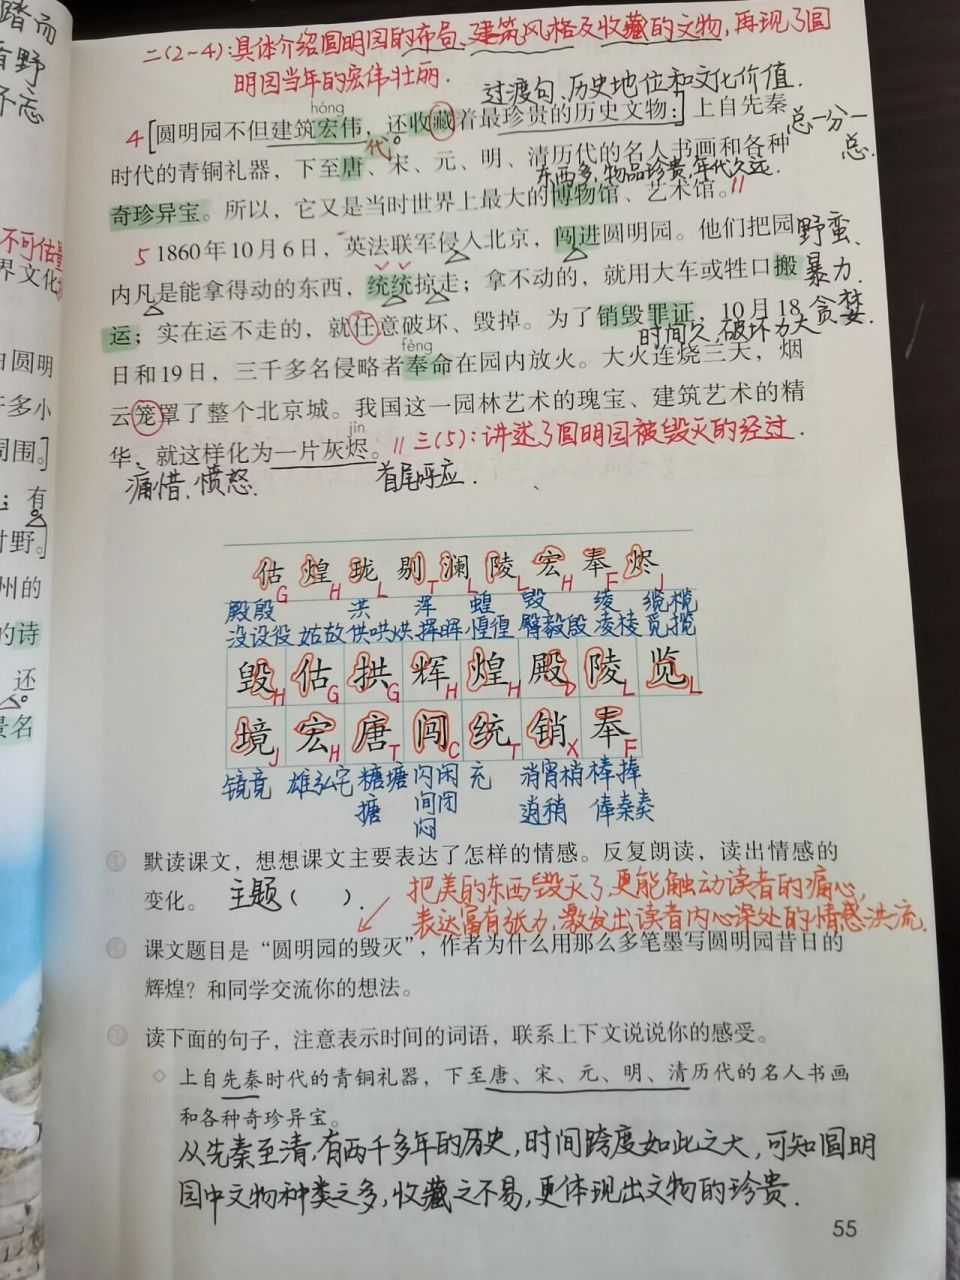 踏而
野
忘
二(2~4):具体介绍圆明园的布局、建筑风格及收藏的文物,再现了圆
明园当年的宏伟壮丽.
过渡句、历史地位和文化价值.
hóng
4[圆明园不但建筑宏伟，还收藏着最珍贵的历史文物:]上自先秦
总一分一
总.
代
时代的青铜礼器，下至唐、宋、元、明、清历代的名人书画和各种
东西多,物品珍贵,年代久远.
奇珍异宝。所以，它又是当时世界上最大的博物馆、艺术馆。
5 1860年10月6日，英法联军侵入北京，闯进圆明园。他们把园
野蛮、
内凡是能拿得动的东西，统统掠走；拿不动的，就用大车或牲口搬
暴力、
运；实在运不走的，就任意破坏、毁掉。为了销毁罪证，10月18
贪婪.
时间久,破坏力大
fèng
日和19日，三千多名侵略者奉命在园内放火。大火连烧三天，烟
云笼罩了整个北京城。我国这一园林艺术的瑰宝、建筑艺术的精
jìn
华，就这样化为一片灰烬。
三(5):讲述了圆明园被毁灭的经过.
痛惜、愤怒.
首尾呼应.
不可估量
界文化
圆明
多小
周围。]
；有
野。]
州的
的诗
还
景名
估煌珑剔澜陵宏奉烬
G H L T L L H F J
殿殷 洪 浑 蝗 毁 绫 缆榄
没设役 姑故 供哄烘 挥晖 惶徨 臀毅殷 凌棱 觅揽
毁估拱辉煌殿陵览
H G G H H D L L
境宏唐闯统销奉
J H T C T X F
镜竟 雄弘宅 糖塘 闪闲 充 消宵梢 棒捧
搪 间闭 逍稍 俸秦奏
闷
默读课文，想想课文主要表达了怎样的情感。反复朗读，读出情感的
变化。 主题( ).
把美的东西毁灭了,更能触动读者的痛心,
表达富有张力,激发出读者内心深处的情感洪流.
课文题目是“圆明园的毁灭”，作者为什么用那么多笔墨写圆明园昔日的
辉煌？和同学交流你的想法。
读下面的句子，注意表示时间的词语，联系上下文说说你的感受。
◇ 上自先秦时代的青铜礼器，下至唐、宋、元、明、清历代的名人书画
和各种奇珍异宝。
从先秦至清,有两千多年的历史,时间跨度如此之大,可知圆明
园中文物种类之多,收藏之不易,更体现出文物的珍贵.
55